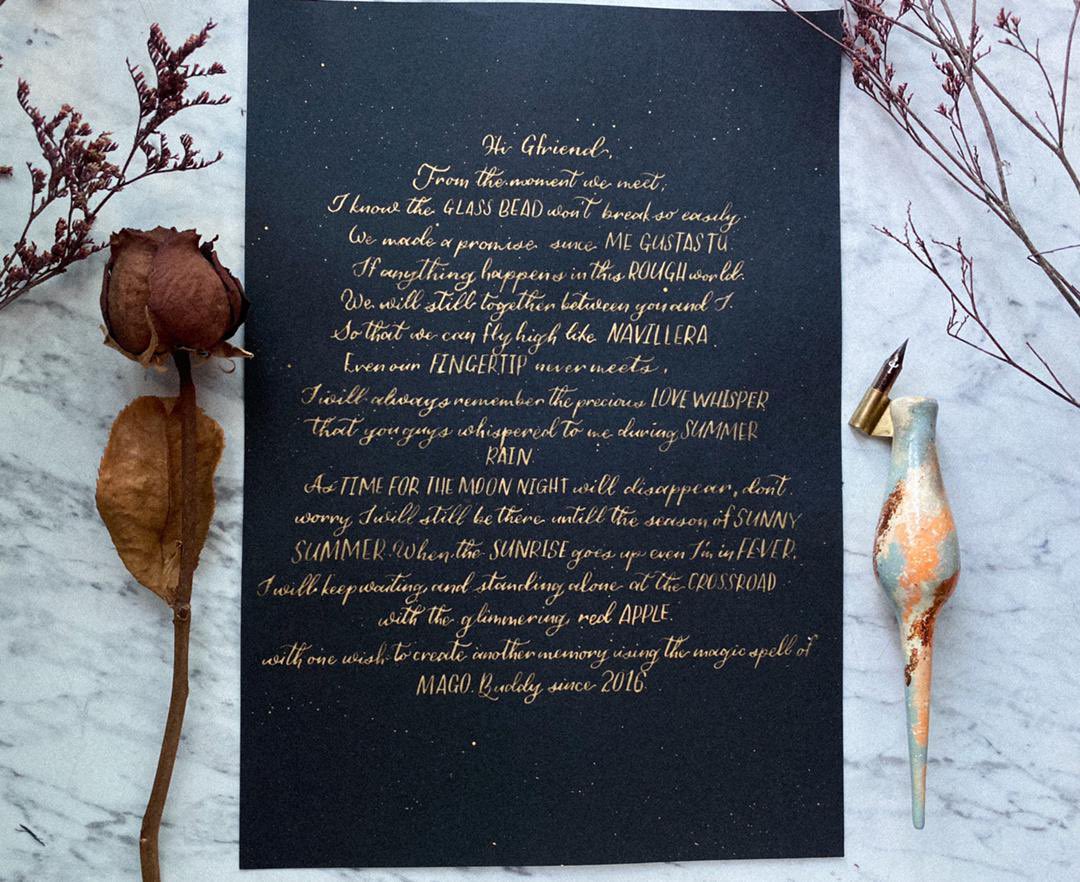 Hi Gfriend,
From the moment we meet,
I know the GLASS BEAD won't break so easily.
We made a promise since ME GUSTAS TU.
If anything happens in this ROUGH world.
We will still together between you and I.
So that we can fly high like NAVILLERA.
Even our FINGERTIP never meets,
I will always remember the precious LOVE WHISPER
that you guys whispered to me during SUMMER
RAIN.
As TIME FOR THE MOON NIGHT will disappear, don't
worry I will still be there untill the season of SUNNY
SUMMER. When the SUNRISE goes up even I'm in FEVER.
I will keep waiting and standing alone at the CROSSROAD
with the glimmering red APPLE.
with one wish to create another memory using the magic spell of
MAGO. Buddy since 2016.